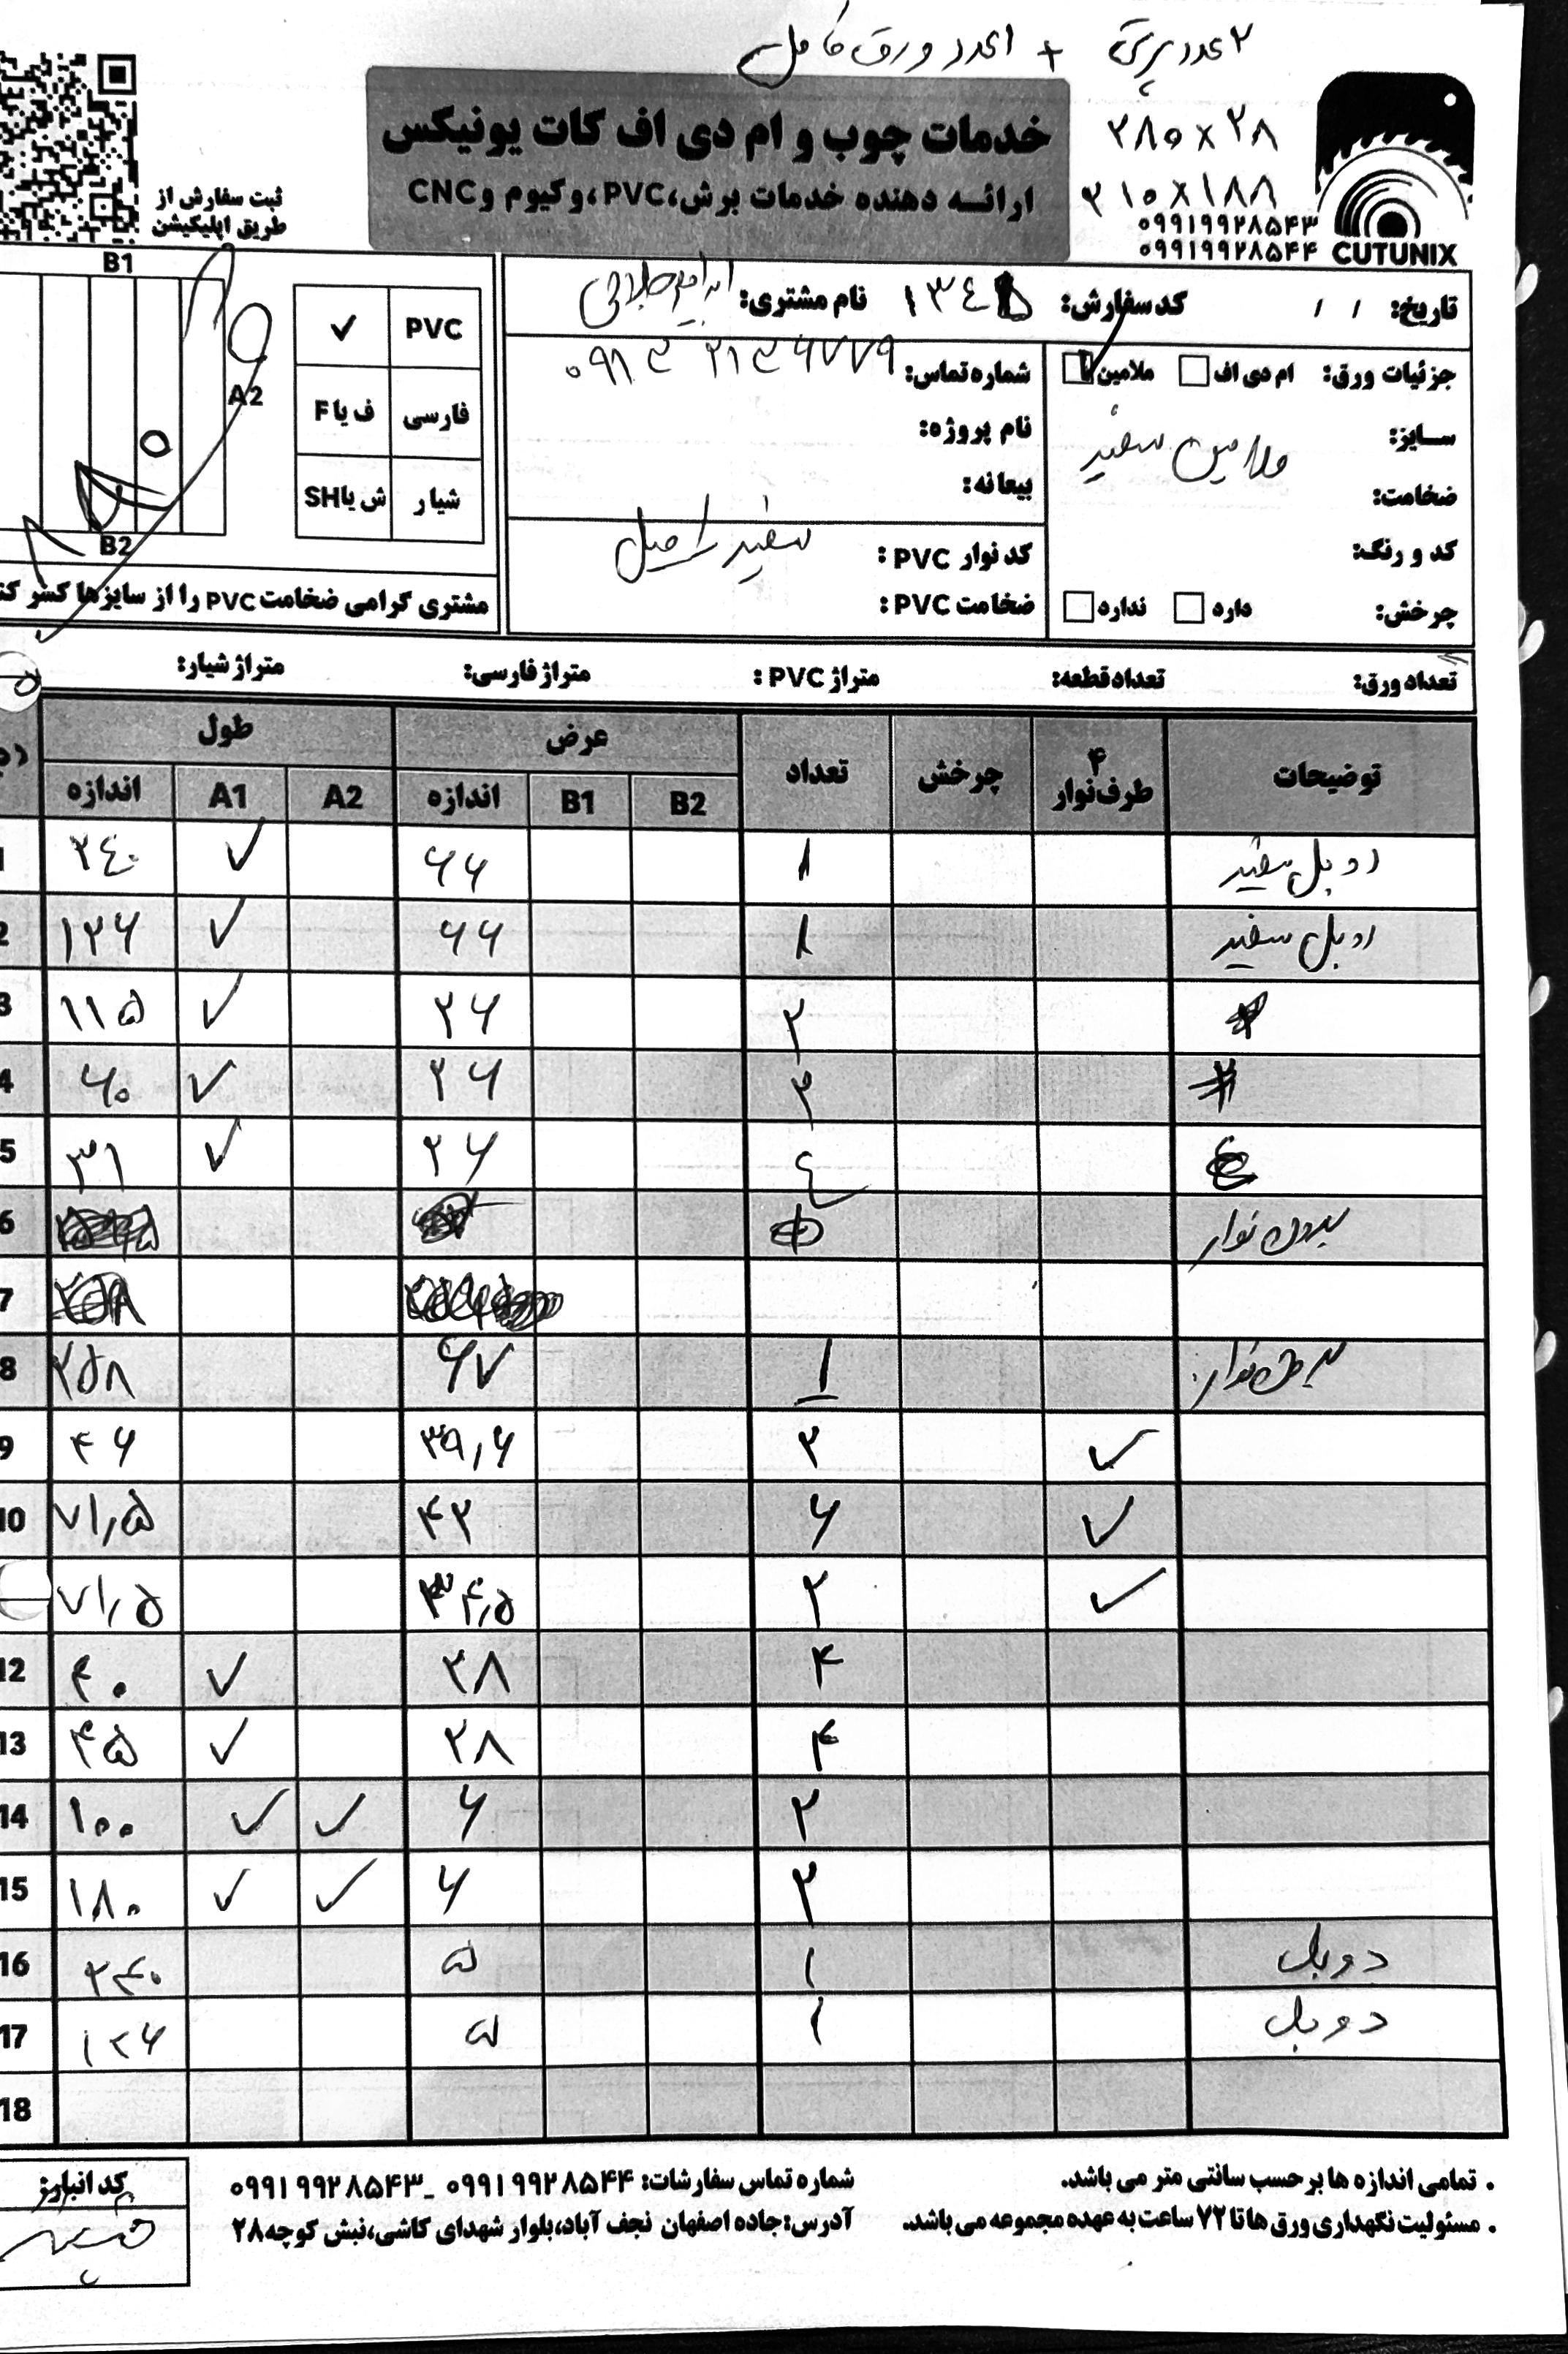 ۲ عدد پرتی + ۱عدد ورق کامل
۲۸۵×۲۸
۲۱۵×۱۸۸
خدمات چوب و ام دی اف کات یونیکس
ارائه دهنده خدمات برش،PVC،وکیوم وCNC
۰۹۹۱۹۹۲۸۵۴۳
۰۹۹۱۹۹۲۸۵۴۴
CUTUNIX
ثبت سفارش از
طریق اپلیکیشن
تاریخ: / / کد سفارش: نام مشتری:
جزئیات ورق: ام دی اف ملامین شماره تماس:
سایز: ملامین سفید نام پروژه:
ضخامت: بیعانه:
کد و رنگ: کد نوار PVC: سفید
چرخش: دارد ندارد ضخامت PVC:
B1
A2
B2
PVC ✓
فارسی ف یا F
شیار ش یا SH
مشتری گرامی ضخامت PVC را از سایزها کسر
تعداد ورق: تعداد قطعه: متراژ PVC: متراژ فارسی: متراژ شیار:
طول عرض تعداد چرخش ۴ طرف نوار توضیحات
اندازه A1 A2 اندازه B1 B2
1 ۲۴۰ ✓ ۶۶ ۱ دوبل سفید
2 ۱۲۶ ✓ ۶۶ ۱ دوبل سفید
3 ۱۱۵ ✓ ۲۶ ۲
4 ۶۰ ✓ ۲۶ ۲
5 ۳۱ ✓ ۲۶ ۴
6 بدون نوار
7
8 ۲۵۸ ۶۷ ۱ بدون نوار
9 ۴۶ ۳۹٫۶ ۲ ✓
10 ۷۱٫۵ ۴۲ ۶ ✓
۷۱٫۵ ۳۴٫۵ ۲ ✓
12 ۴۰ ✓ ۲۸ ۴
13 ۴۵ ✓ ۲۸ ۴
14 ۱۰۰ ✓ ✓ ۶ ۲
15 ۱۸۰ ✓ ✓ ۶ ۳
16 ۲۴۰ ۵ ۱ دوبل
17 ۱۲۶ ۵ ۱ دوبل
18
. تمامی اندازه ها بر حسب سانتی متر می باشد.
. مسئولیت نگهداری ورق ها تا ۷۲ ساعت به عهده مجموعه می باشد.
شماره تماس سفارشات: ۰۹۹۱۹۹۲۸۵۴۴ _ ۰۹۹۱۹۹۲۸۵۴۳
آدرس:جاده اصفهان نجف آباد،بلوار شهدای کاشی،نبش کوچه ۲۸
کد انبارز